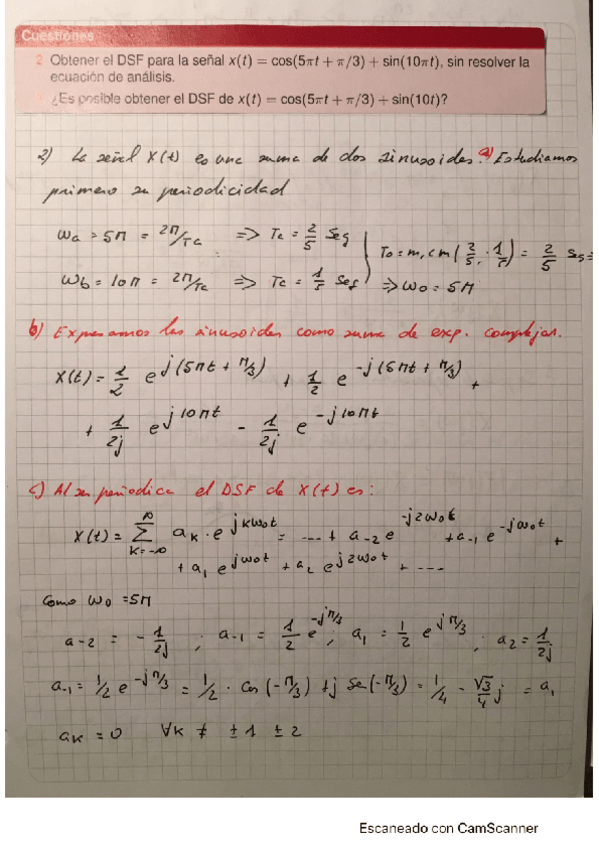 Cuestiones
2 Obtener el DSF para la señal x(t) = cos(5πt + π/3) + sin(10πt), sin resolver la
ecuación de análisis.
¿Es posible obtener el DSF de x(t) = cos(5πt + π/3) + sin(10t)?
2) La señal X(t) es una suma de dos sinusoides. a) Estudiamos
primero su periodicidad
ωa = 5π = 2π/Ta => Ta = 2/5 seg
ωb = 10π = 2π/Ta => Ta = 1/5 seg
To = m.c.m (2/5, 1/5) = 2/5 seg =>
=> ωo = 5π
b) Expresamos las sinusoides como suma de exp. complejas.
X(t) = 1/2 e^j(5πt + π/3) + 1/2 e^-j(5πt + π/3) +
+ 1/2j e^j10πt - 1/2j e^-j10πt
c) Al ser periodica el DSF de X(t) es:
X(t) = ∑ k=-∞ ∞ ak · e^jkωot = ... + a-2 e^-j2ωot + a-1 e^-jωot +
+ a1 e^jωot + a2 e^j2ωot + ...
Como ωo = 5π
a-2 = - 1/2j ; a-1 = 1/2 e^-jπ/3 ; a1 = 1/2 e^jπ/3 ; a2 = 1/2j
a-1 = 1/2 e^-jπ/3 = 1/2 · Cos (-π/3) + j Se(-π/3) = 1/4 - √3/4 j = a1
ak = 0 ∀k ≠ ±1 ±2
Escaneado con CamScanner